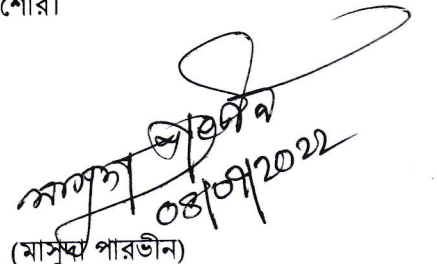 শোর।
মাসুদা পারভীন
০৪/০৭/2022
(মাসুদা পারভীন)